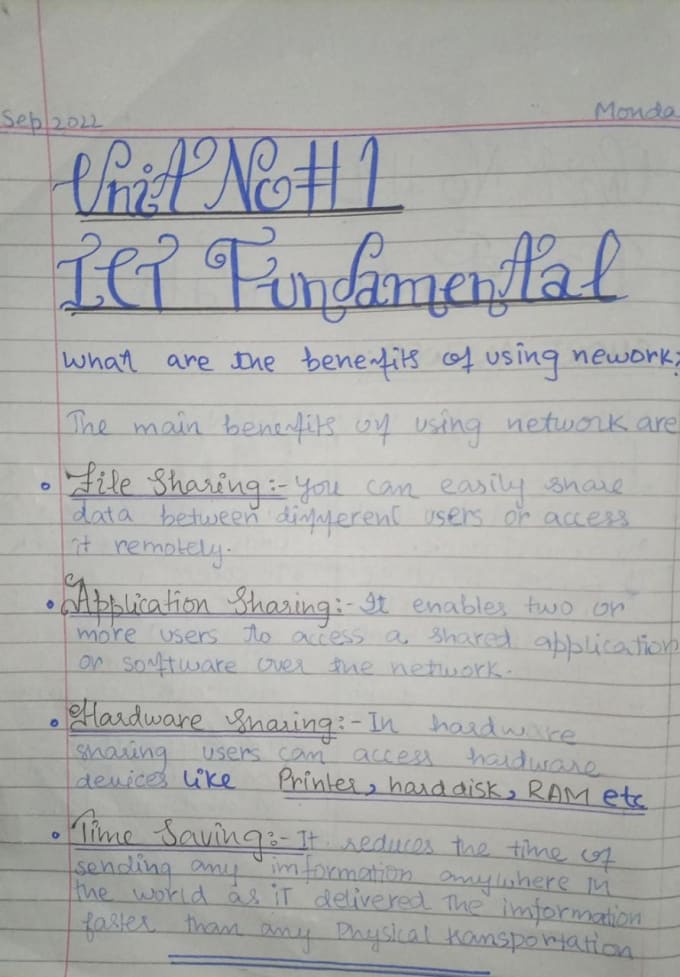 Sep 2022 Monda
Unit No # 1
ICT Fundamental
What are the benefits of using nework?
The main benefits of using network are
• File Sharing:- You can easily share
data between different users or access
it remotely.
• Application Sharing:- It enables two or
more users to access a shared application
or software over the network.
• Hardware Sharing:- In hardware
sharing users can access hardware
devices like Printer, hard disk, RAM etc
• Time Saving:- It reduces the time of
sending any imformation anywhere in
the world as iT delivered The imformation
faster than any Physical transportation